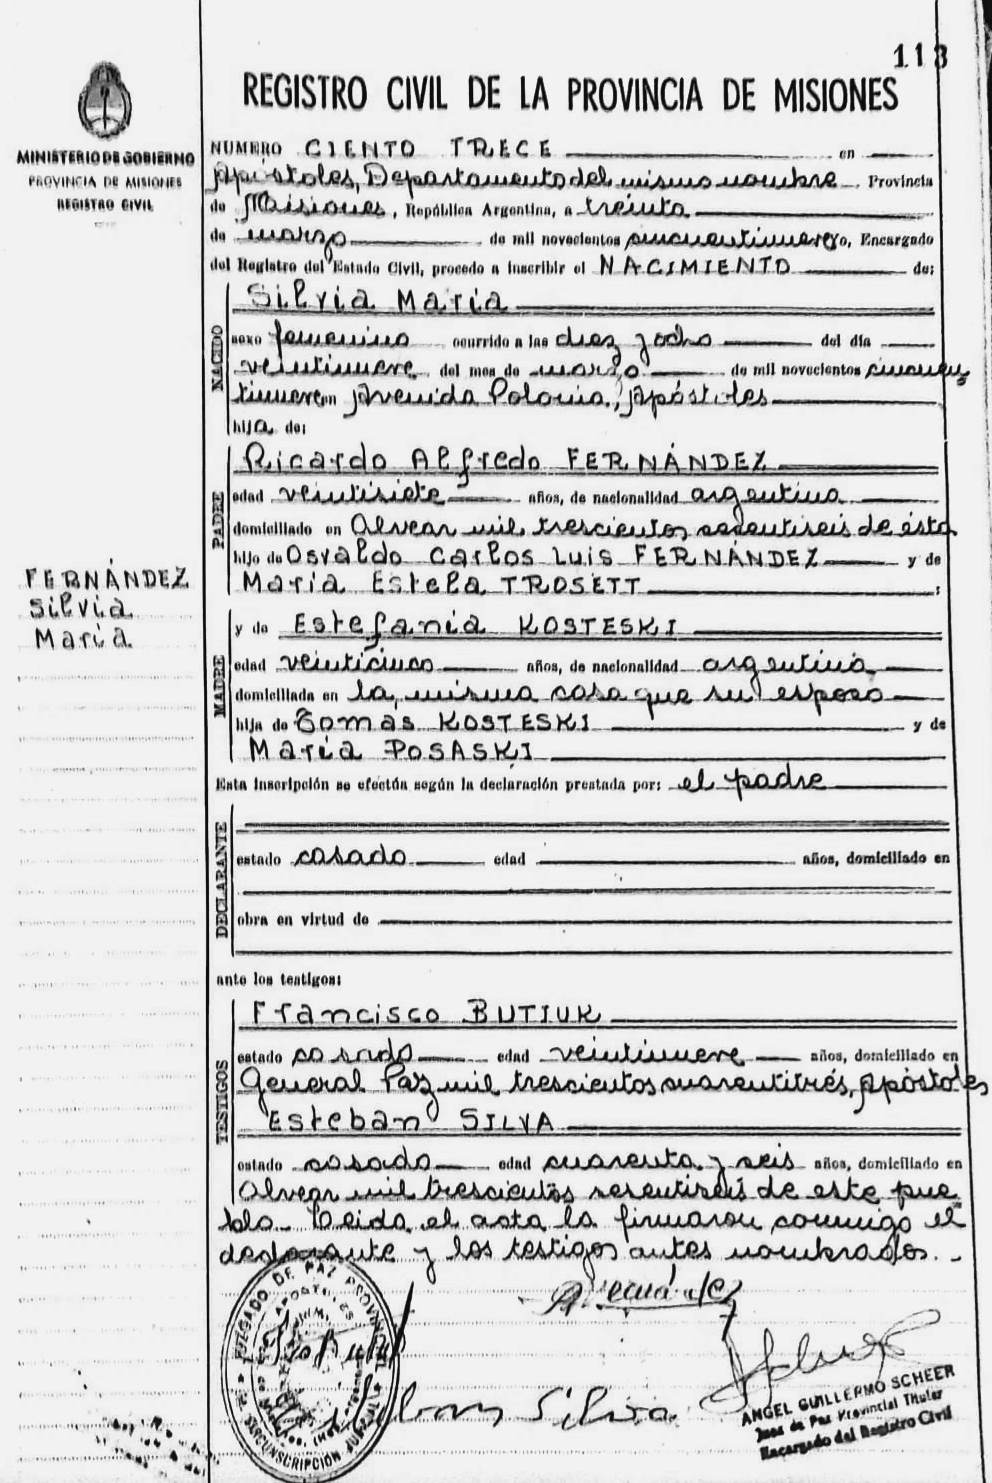 113
REGISTRO CIVIL DE LA PROVINCIA DE MISIONES
MINISTERIO DE GOBIERNO
PROVINCIA DE MISIONES
REGISTRO CIVIL
NUMERO CIENTO TRECE en
Apóstoles, Departamento del mismo nombre Provincia
de Misiones, República Argentina, a treinta
de marzo de mil novecientos cincuentinueve yo, Encargado
del Registro del Estado Civil, procedo a inscribir el NACIMIENTO de:
NACIDO
Silvia María
sexo femenino ocurrido a las diez y ocho del día
veintinueve del mes de marzo de mil novecientos cincuen
tinueve en Avenida Polonia, Apóstoles
hija de:
PADRE
Ricardo Alfredo FERNÁNDEZ
edad veintisiete años, de nacionalidad argentina
domiciliado en Alvear mil trescientos sesentiseis de ésta
hijo de Osvaldo Carlos Luis FERNÁNDEZ y de
María Estela TROSETT :
FERNÁNDEZ
Silvia
María
MADRE
y de Estefanía KOSTESKI
edad veinticinco años, de nacionalidad argentina
domiciliada en la misma casa que su esposo
hija de Tomas KOSTESKI y de
María POSASKI
Esta inscripción se efectúa según la declaración prestada por: el padre
DECLARANTE
estado casado edad años, domiciliado en
obra en virtud de
ante los testigos:
TESTIGOS
Francisco BUTIUK
estado casado edad veintinueve años, domiciliado en
General Paz mil trescientos cuarentitrés, Apóstoles
Esteban SILVA
estado casado edad cuarenta y seis años, domiciliado en
Alvear mil trescientos sesentiseis de este pue
blo. Leida el acta la firmaron conmigo el
declarante y los testigos antes nombrados.
JUZGADO DE PAZ PROVINCIAL
CIRCUNSCRIPCIÓN
Silva
ANGEL GUILLERMO SCHEER
Juez de Paz Provincial Titular
Encargado del Registro Civil